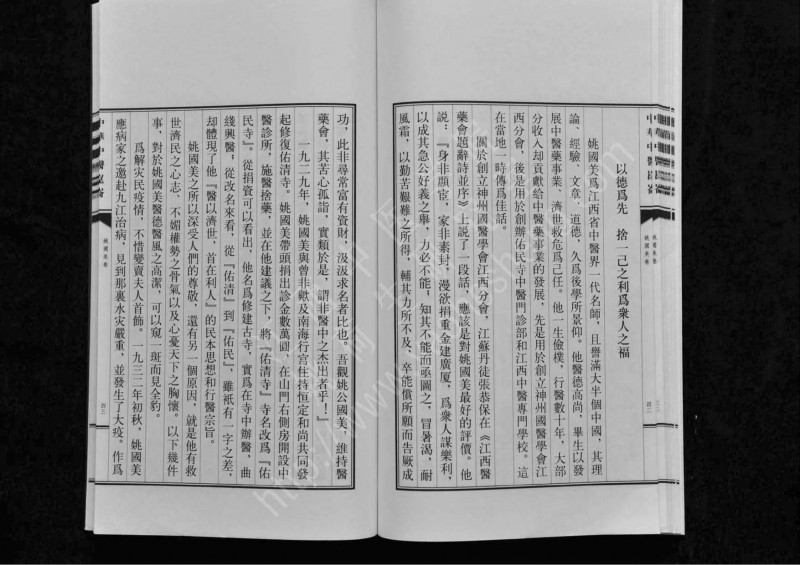 以德爲先　捨一己之利爲衆人之福
姚國美爲江西省中醫界一代名師，且譽滿大半個中國，其理
論、經驗、文章、道德，久爲後學所景仰。他醫德高尚，畢生以發
展中醫藥事業、濟世救危爲己任。他一生儉樸，行醫數十年，大部
分收入却貢獻給中醫藥事業的發展，先是用於創立神州國醫學會江
西分會，後是用於創辦佑民寺中醫門診部和江西中醫專門學校。這
在當地一時傳爲佳話。
關於創立神州國醫學會江西分會，江蘇丹徒張恭保在《江西醫
藥會題辭詩並序》上説了一段話，應該是對姚國美最好的評價。他
説：『身非顯宦，家非素封，漫欲捐重金建廣厦，爲衆人謀樂利，
以成其急公好義之舉，力必不能，知其不能而亟圖之，冒暑濕，耐
風雷，以勤苦艱難之所得，輔其力所不及，卒能償所願而告厥成
功，此非尋常富有資財，汲汲求名者比也。吾觀姚公國美，維持醫
藥會，其苦心孤詣，實類於是，謂非醫中之杰出者乎！』
一九二九年，姚國美與曾非歟及南海行宫住持恒定和尚共同發
起修復佑清寺。姚國美帶頭捐出診金數萬圓，在山門右側房開設中
醫診所，施醫捨藥，並在他建議之下，將『佑清寺』寺名改爲『佑
民寺』。從捐資可以看出，他名爲修建古寺，實爲在寺中辦醫，曲
綫興醫，從改名來看，從『佑清』到『佑民』，雖祇有一字之差，
却體現了他『醫以濟世，首在利人』的民本思想和行醫宗旨。
姚國美之所以深受人們的尊敬，還有另一個原因，就是他有救
世濟民之心志、不媚權勢之骨氣以及心憂天下之胸懷。以下幾件
事，對於姚國美醫德醫風之高潔，可以窺一斑而見全豹。
爲解灾民疫情，不惜變賣夫人首飾。一九三二年初秋，姚國美
應病家之邀赴九江治病，見到那裏水灾嚴重，並發生了大疫。作爲
姚國美卷
四三